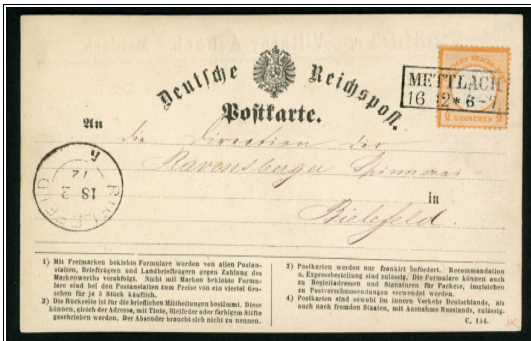 Deutsche Reichspost.
Postkarte.
METTLACH
16 2 * 6-7.
½ GROSCHEN
An
die Direction der
Ravensberger Spinnerei
in
Bielefeld.
BIELEFELD
18 2
72
1) Mit Freimarken beklebte Formulare werden von allen Postan-
stalten, Briefträgern und Landbriefträgern gegen Zahlung des
Markenwerths verabfolgt. Nicht mit Marken beklebte Formu-
lare sind bei den Postanstalten zum Preise von ein viertel Gro-
schen für je 5 Stück käuflich.
2) Die Rückseite ist für die brieflichen Mittheilungen bestimmt. Diese
können, gleich der Adresse, mit Tinte, Bleifeder oder farbigem Stifte
geschrieben werden. Der Absender braucht sich nicht zu nennen.
3) Postkarten werden nur frankirt befördert. Recommandation
u. Expressbestellung sind zulässig. Die Formulare können auch
zu Begleitadressen und Signaturen für Packete, imgleichen
zu Postvorschusssendungen verwendet werden.
4) Postkarten sind sowohl im innern Verkehr Deutschlands, als
auch nach fremden Staaten, mit Ausnahme Russlands, zulässig.
C. 154.